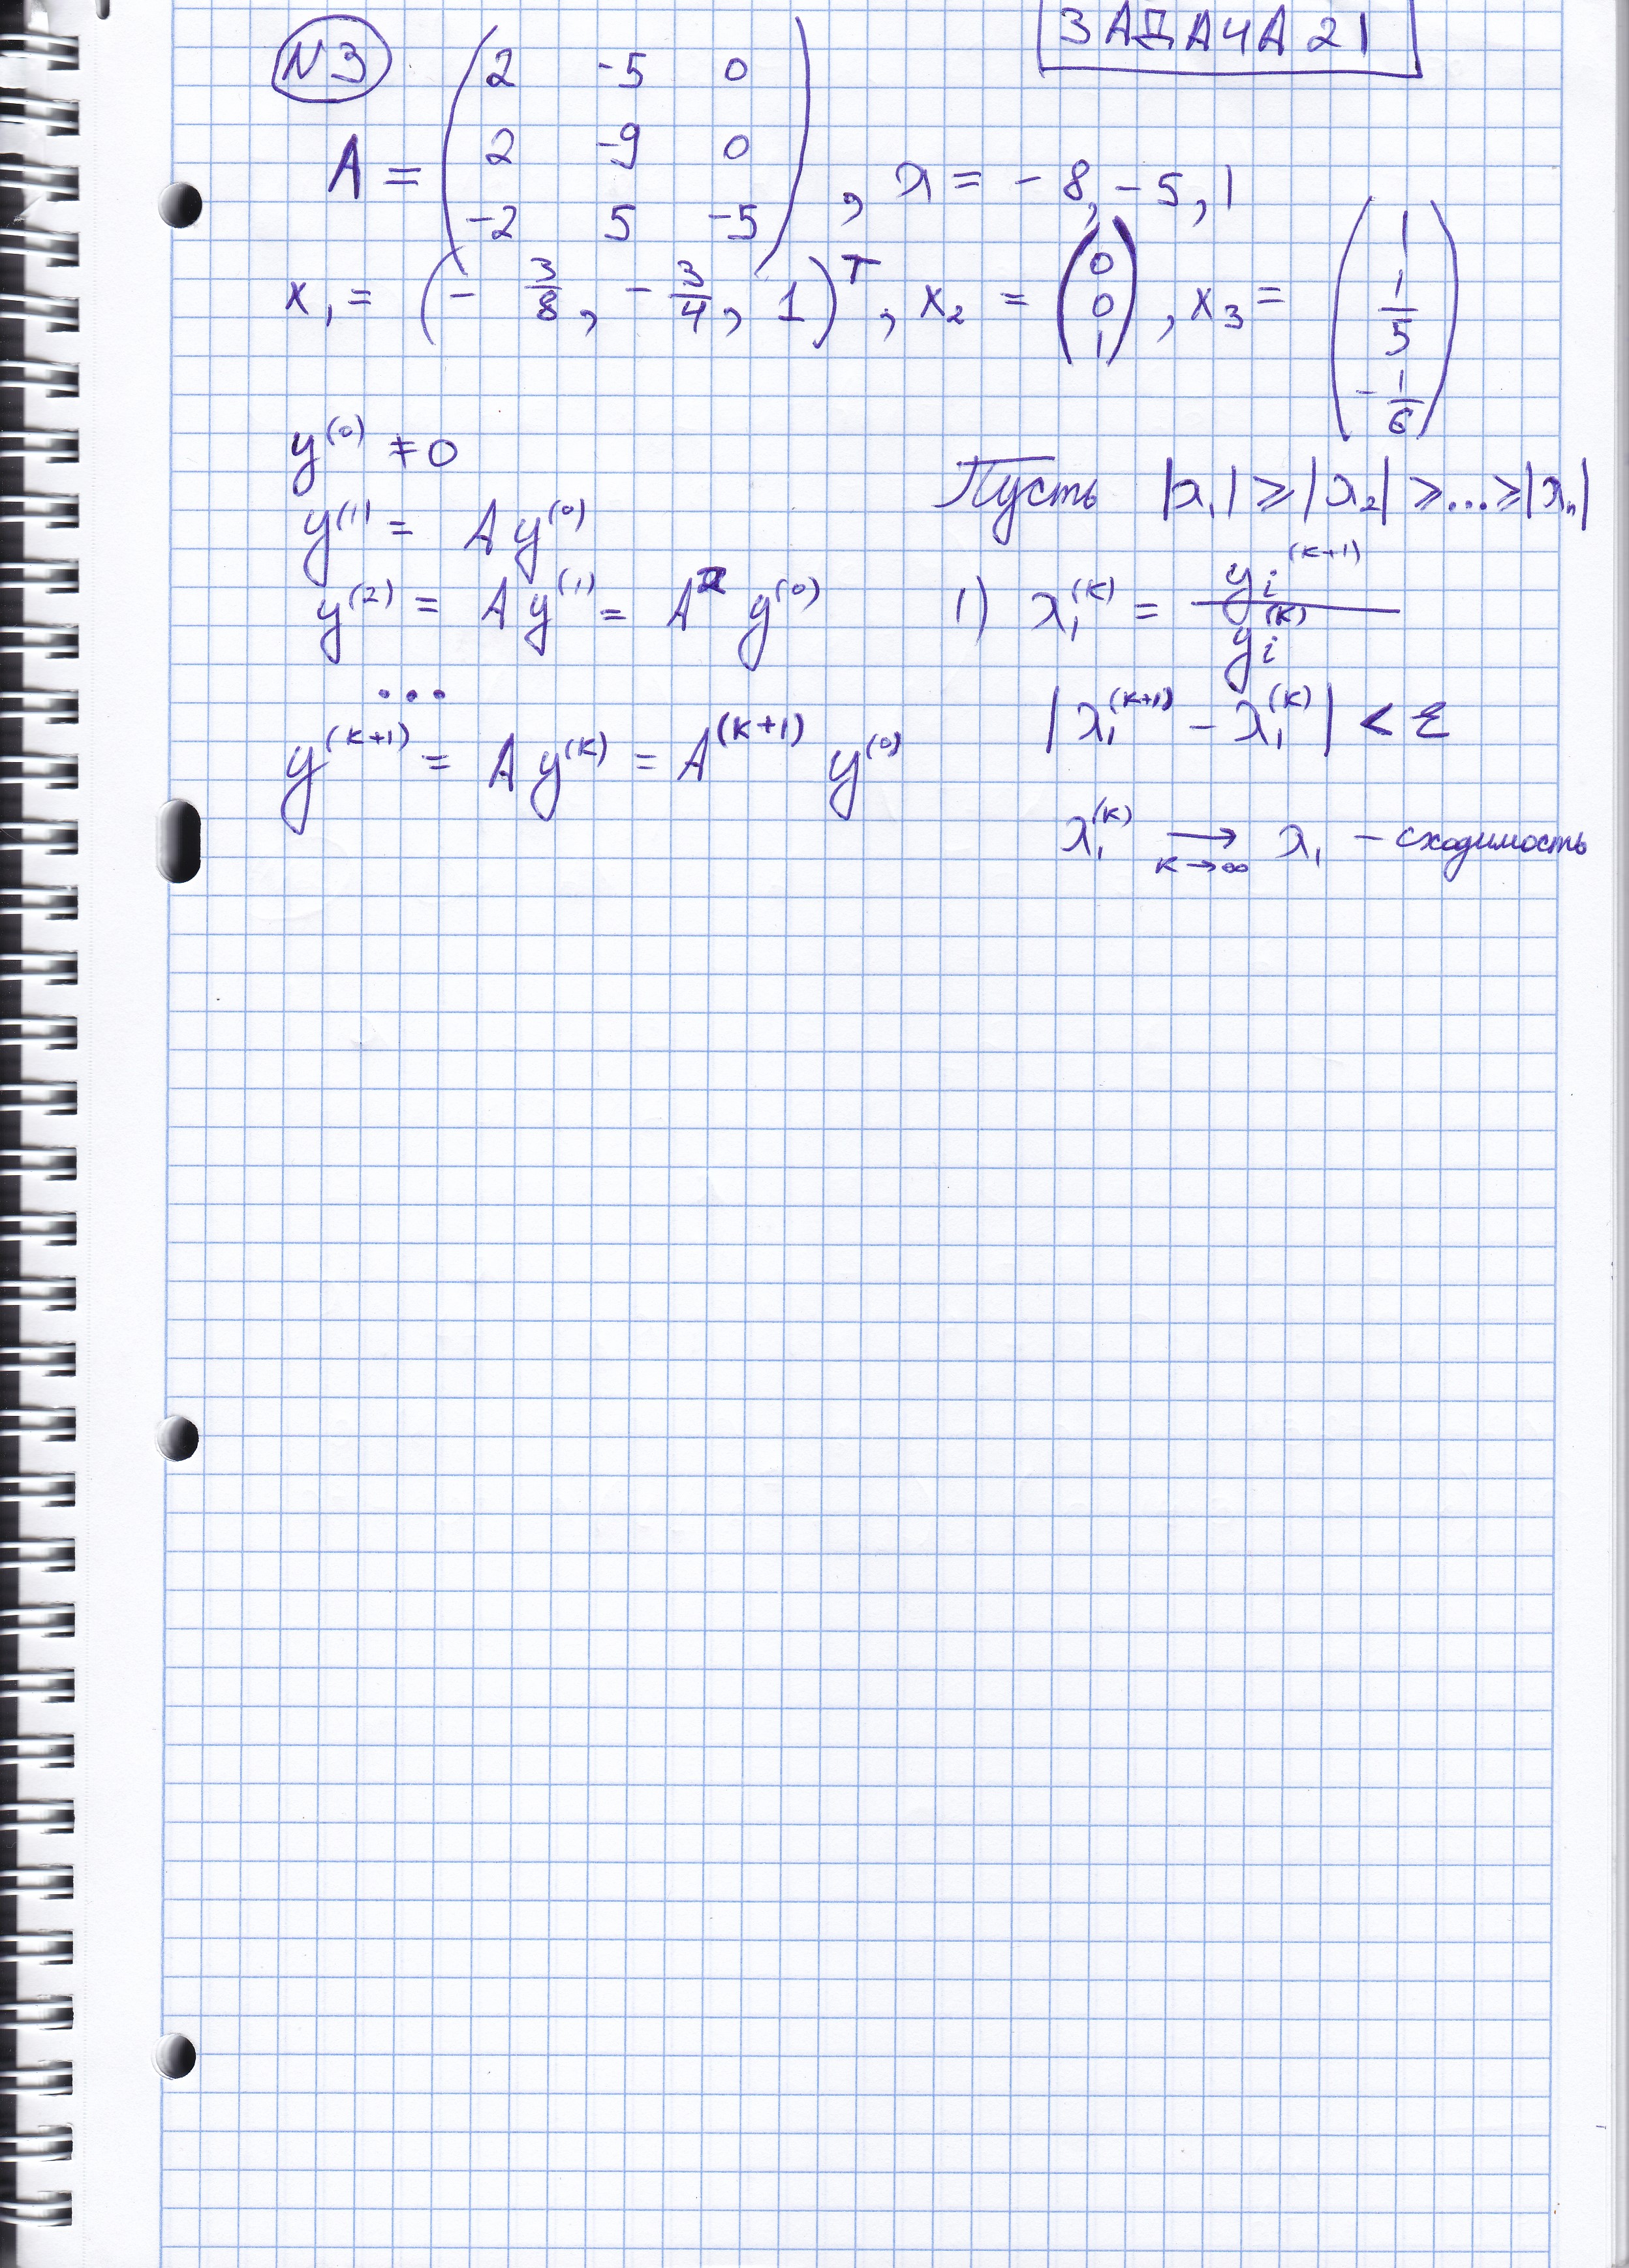 ЗАДАЧА 21
N3
A = ( 2 -5 0
2 -9 0
-2 5 -5 ) , λ = -8, -5, 1
x₁ = ( - 3/8 , - 3/4 , 1 )ᵀ , x₂ = ( 0 0 1 ) , x₃ = ( 1 1/5 - 1/6 )
y⁽⁰⁾ ≠ 0
y⁽¹⁾ = A y⁽⁰⁾
y⁽²⁾ = A y⁽¹⁾ = A² y⁽⁰⁾
...
y⁽ᵏ⁺¹⁾ = A y⁽ᵏ⁾ = A⁽ᵏ⁺¹⁾ y⁽⁰⁾
Пусть |λ₁| ⩾ |λ₂| ⩾ ... ⩾ |λₙ|
1) λ₁⁽ᵏ⁾ = yᵢ⁽ᵏ⁺¹⁾ / yᵢ⁽ᵏ⁾
| λ₁⁽ᵏ⁺¹⁾ - λ₁⁽ᵏ⁾ | < ε
λ₁⁽ᵏ⁾ → λ₁ – сходимость
к → ∞